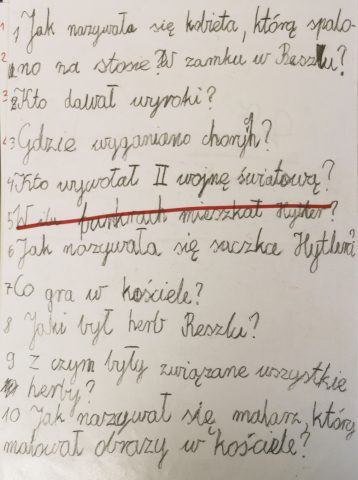 1 Jak nazywała się kobieta, którą spalo-
no na stosie? W zamku w Reszlu?
Kto dawał wyroki?
3 Gdzie wyganiano choryh?
4 Kto wywołał II wojnę światową?
5 W ilu bunkrach mieszkał Hytler?
6 Jak nazywała się suczka Hytlera?
7 Co gra w kościele?
8 Jaki był herb Reszlu?
9 Z czym były związane wszystkie
herby?
10 Jak nazywał się malarz, który
malował obrazy w kościele?